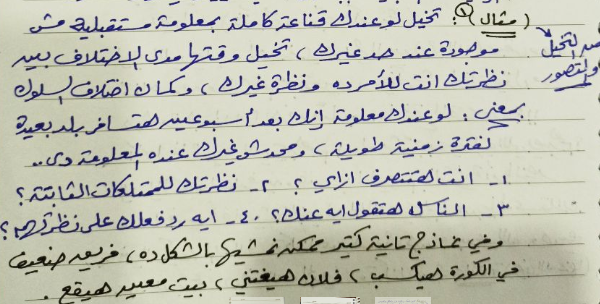 (مثال ٩): تخيل لو عندك قناعة كاملة بمعلومة مستقبلية مش
موجودة عند حد غيرك، تخيل وقتها مدى الاختلاف بين
نظرتك انت للأمر ده ونظرة غيرك، وكمان اختلاف السلوك
بمعنى: لو عندك معلومة إنك بعد أسبوعين هتسافر بلد بعيدة
لفترة زمنية طويلة، ومحدش غيرك عنده المعلومة دي..
١- انت هتتصرف ازاي؟ ٢- نظرتك للممتلكات الثابتة؟
٣- الناس هتقول ايه عنك؟ ٤- ايه رد فعلك على نظرتهم؟
وفي نماذج تانية كتير ممكن نمشيها بالشكل ده، فريق ضعيف
في الكورة هيكسب، فلان هيغتني، بيت معين هيقع.
التخيل
والتصور